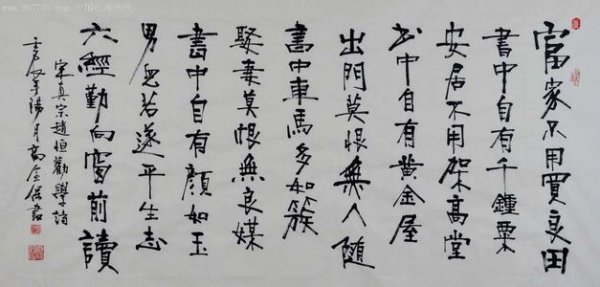 富家不用買良田
書中自有千鍾粟
安居不用架高堂
书中自有黃金屋
出門莫恨無人隨
書中車馬多如簇
娶妻莫恨無良媒
書中自有顏如玉
男兒若遂平生志
六經勤向窗前讀
宋真宗趙恒勸學詩
年陽月高金保書
www.997788.com 中国收藏热线